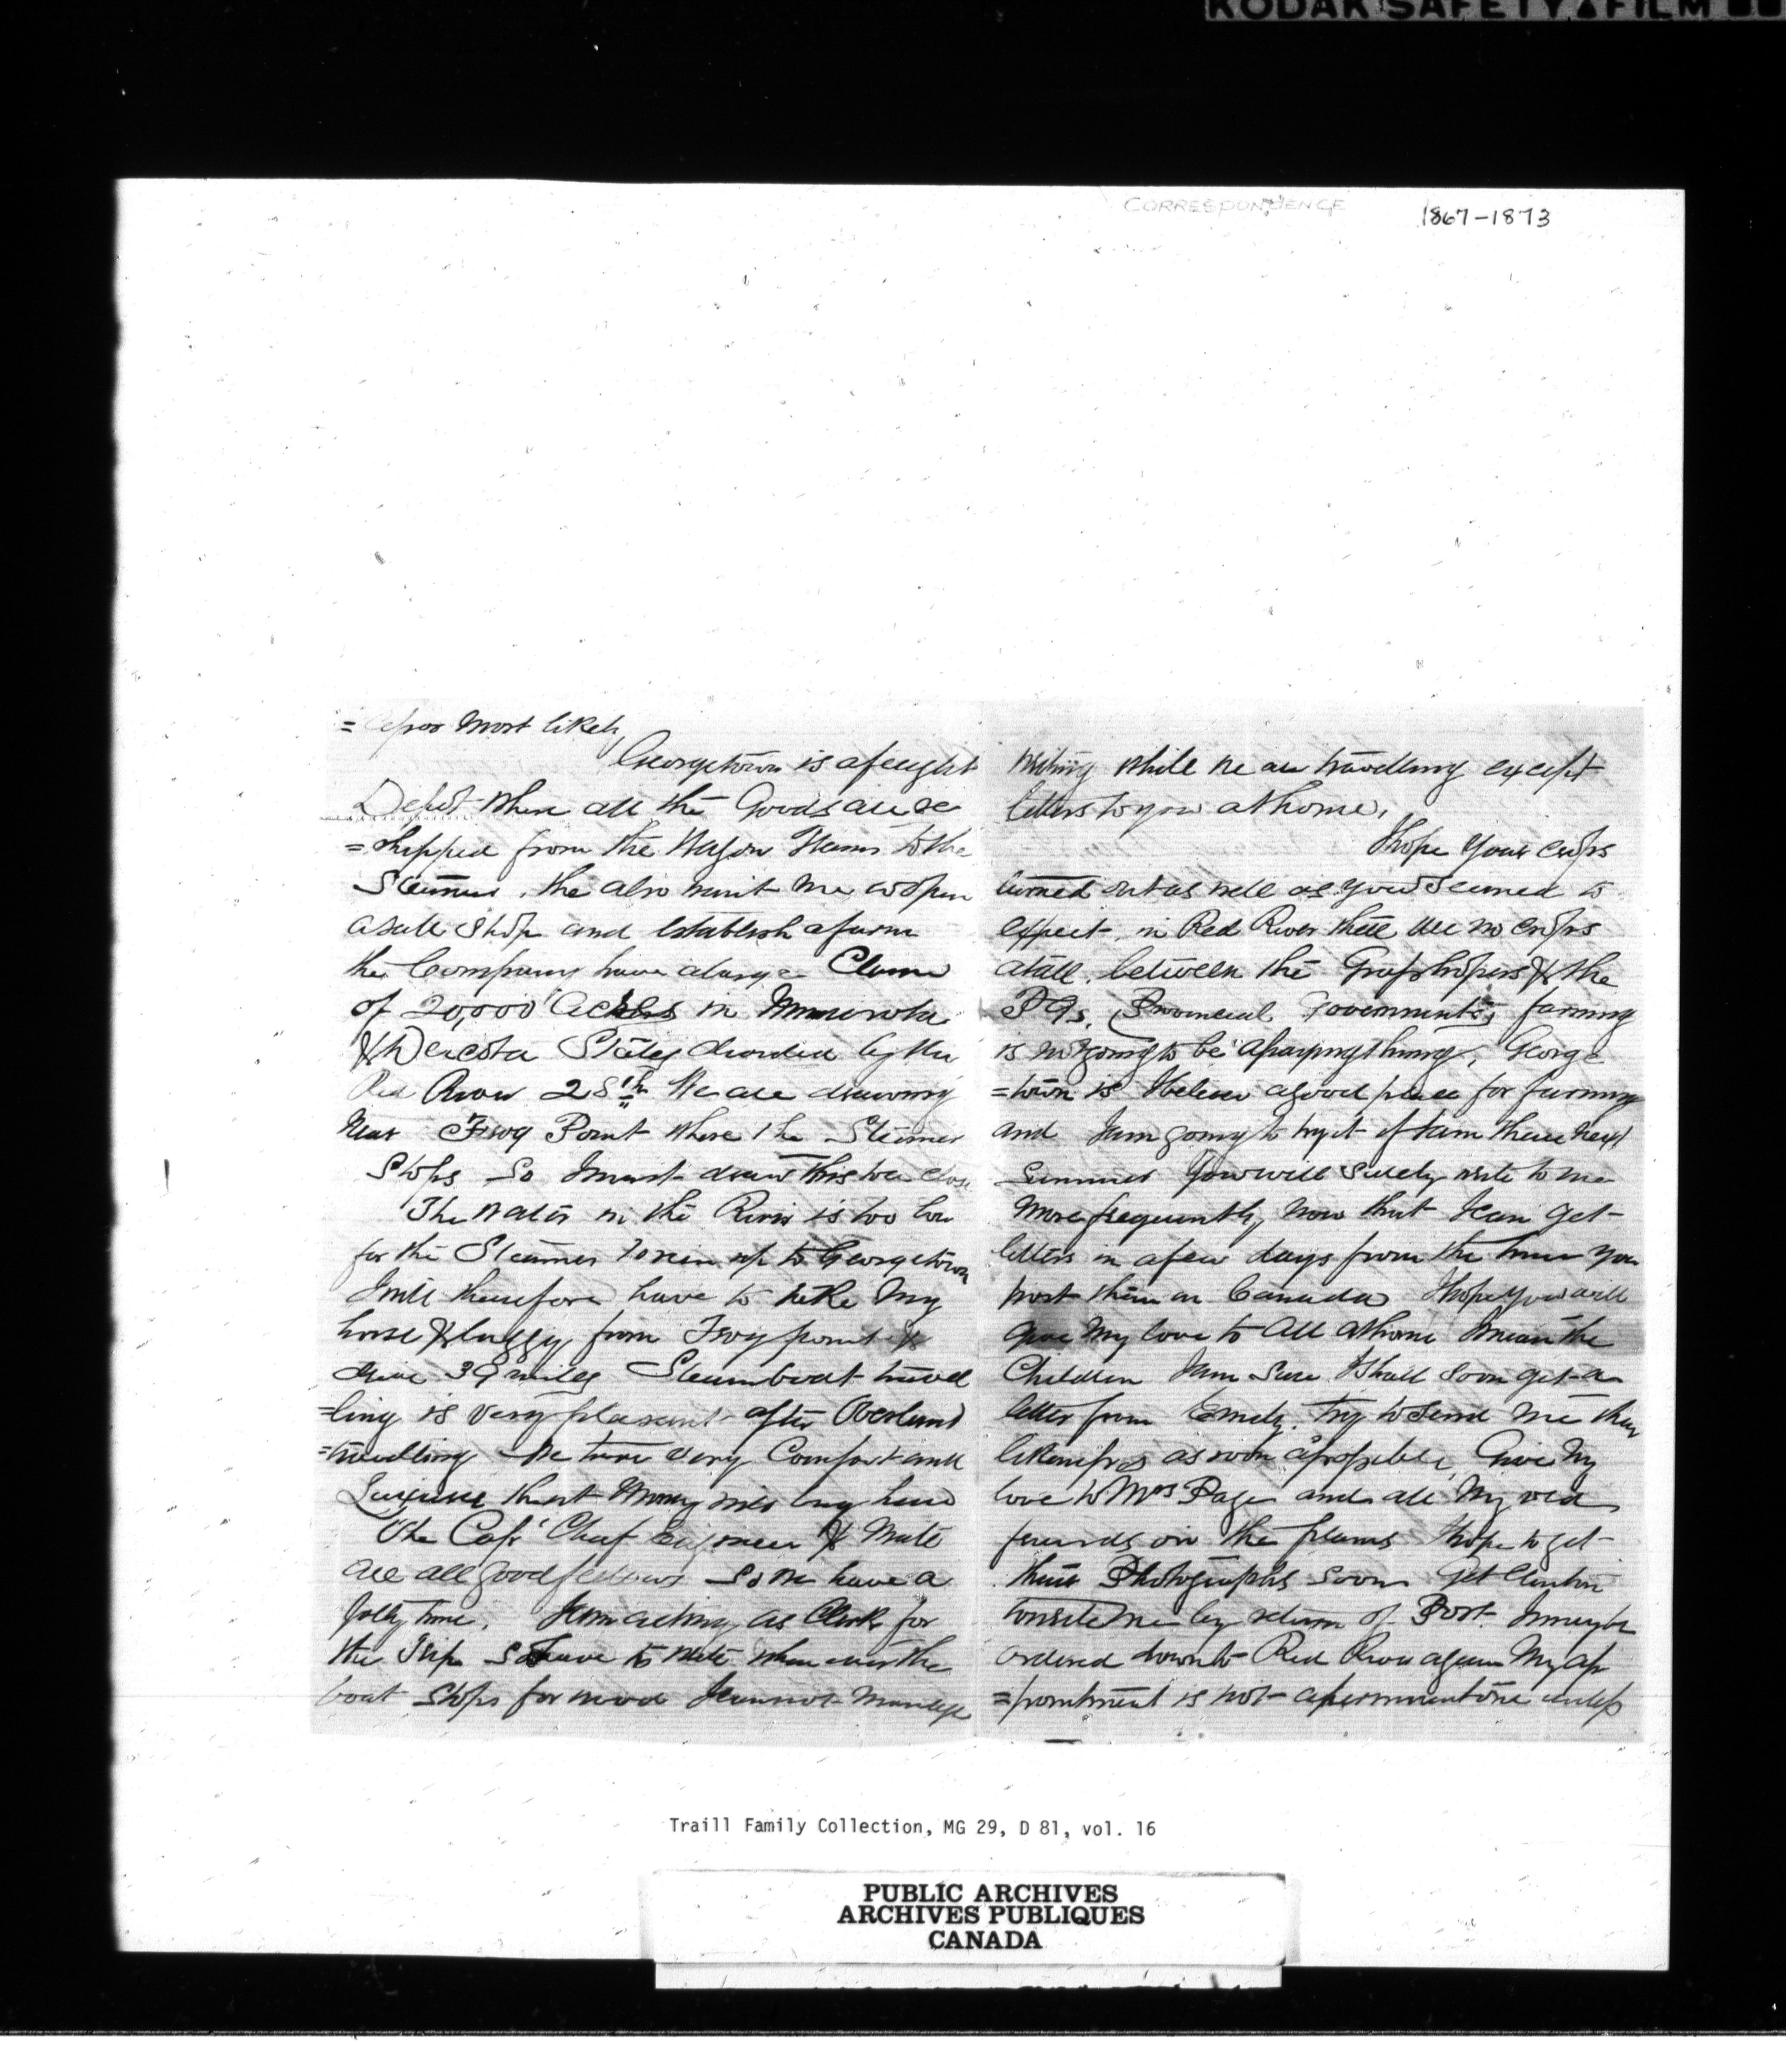 KODAK SAFETY FILM
CORRESPONDENCE 1867-1873
most likely
Georgetown is a freight
Depot where all the Goods are re
=shipped from the Wagon Trains to the
Steamer. the also want me to open
a sale shop and establish a farm
the Company have a large Claim
of 20,000 Acres in Minnesota
& Dacota States divided by the
Red River 28th We are drawing
near Frog Point where the Steamer
stops so I must draw this to a close
The water in the River is too low
for the Steamer to run up to Georgetown
I will therefore have to take my
horse & buggy from Frog point &
drive 39 miles Steamboat travel
=ling is very pleasant after Overland
=travelling We have every Comfort and
that Money can buy here
The Capt Chief Engineer & Mate
are all good fellows so we have a
jolly time. I am acting as Clerk for
the Trip so I have to write when ever the
boat stops for wood I cannot manage
writing while we are travelling except
letters to you at home.
I hope your crops
turned out as well as you seemed to
expect, in Red River there are no crops
atall. between the Grasshopers & the
P Gs. (Provincial Governments) farming
is not going to be a paying thing, George
=town is I believe a good place for farming
and I am going to try it if I am there next
summer You will surely write to me
more frequently, now that I can get
letters in a few days from the time you
post them in Canada I hope you will
give my love to all at home I mean the
Children I am sure I shall soon get a
letter from Emily. Try to send me their
as soon as possible, Give my
love to Mrs Page and all my old
friends on the plains I hope to get
their Photographs soon Get Clinton
to write me by return of Post I may be
ordered down to Red River again My ap
=pointment is not a permanent one unless
Traill Family Collection, MG 29, D 81, vol. 16
PUBLIC ARCHIVES
ARCHIVES PUBLIQUES
CANADA